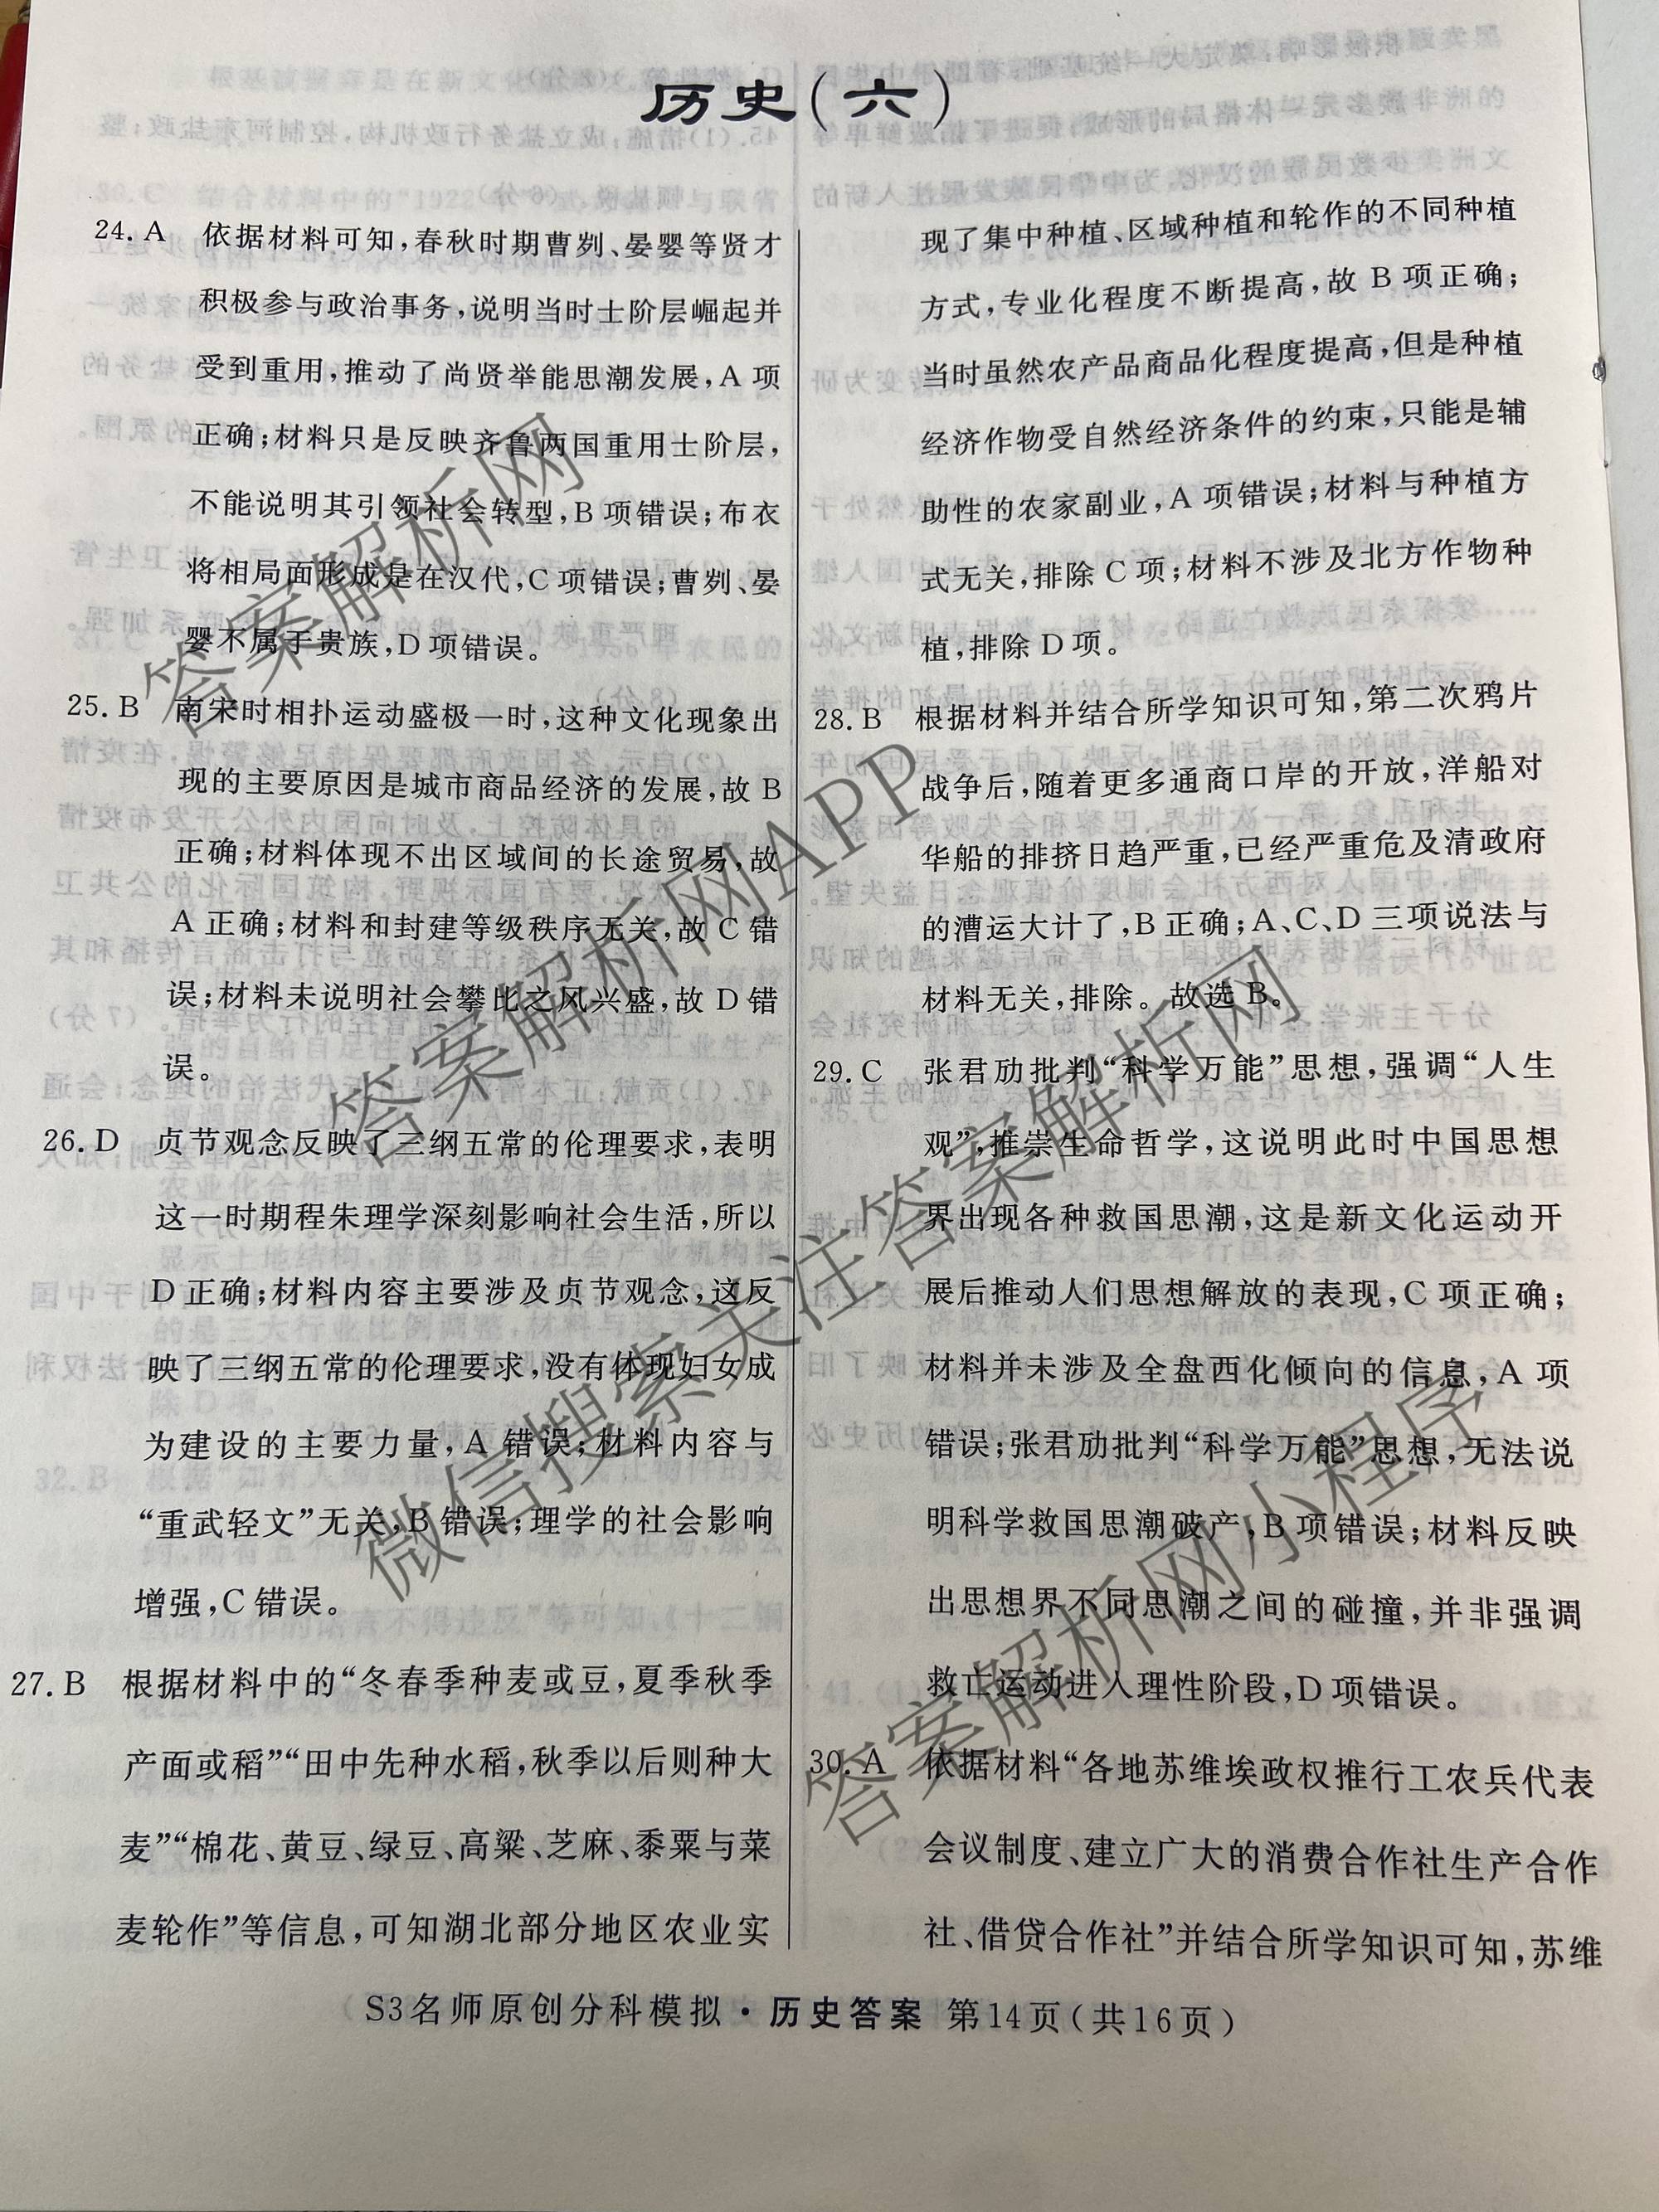 历史(六)
24. A 依据材料可知,春秋时期曹刿、晏婴等贤才
积极参与政治事务,说明当时士阶层崛起并
受到重用,推动了尚贤举能思潮发展,A 项
正确;材料只是反映齐鲁两国重用士阶层,
不能说明其引领社会转型,B项错误;布衣
将相局面形成是在汉代,C项错误;曹刿、晏
婴不属于贵族,D项错误。
25. B 南宋时相扑运动盛极一时,这种文化现象出
现的主要原因是城市商品经济的发展,故 B
正确;材料体现不出区域间的长途贸易,故
A 正确;材料和封建等级秩序无关,故 C 错
误;材料未说明社会攀比之风兴盛,故 D 错
误。
26. D 贞节观念反映了三纲五常的伦理要求,表明
这一时期程朱理学深刻影响社会生活,所以
D 正确;材料内容主要涉及贞节观念,这反
映了三纲五常的伦理要求,没有体现妇女成
为建设的主要力量,A 错误;材料内容与
“重武轻文”无关,B 错误;理学的社会影响
增强,C 错误。
27. B 根据材料中的“冬春季种麦或豆,夏季秋季
产面或稻”“田中先种水稻,秋季以后则种大
麦”“棉花、黄豆、绿豆、高粱、芝麻、黍粟与菜
麦轮作”等信息,可知湖北部分地区农业实
现了集中种植、区域种植和轮作的不同种植
方式,专业化程度不断提高,故 B 项正确;
当时虽然农产品商品化程度提高,但是种植
经济作物受自然经济条件的约束,只能是辅
助性的农家副业,A 项错误;材料与种植方
式无关,排除 C 项;材料不涉及北方作物种
植,排除 D 项。
28. B 根据材料并结合所学知识可知,第二次鸦片
战争后,随着更多通商口岸的开放,洋船对
华船的排挤日趋严重,已经严重危及清政府
的漕运大计了,B 正确;A、C、D 三项说法与
材料无关,排除。故选 B。
29. C 张君劢批判“科学万能”思想,强调“人生
观”,推崇生命哲学,这说明此时中国思想
界出现各种救国思潮,这是新文化运动开
展后推动人们思想解放的表现,C 项正确;
材料并未涉及全盘西化倾向的信息,A 项
错误;张君劢批判“科学万能”思想,无法说
明科学救国思潮破产,B 项错误;材料反映
出思想界不同思潮之间的碰撞,并非强调
救亡运动进入理性阶段,D 项错误。
30. A 依据材料“各地苏维埃政权推行工农兵代表
会议制度、建立广大的消费合作社生产合作
社、借贷合作社”并结合所学知识可知,苏维
S3名师原创分科模拟·历史答案 第14页(共16页)
答案解析网
答案解析网APP
微信搜索关注答案解析网
答案解析网小程序